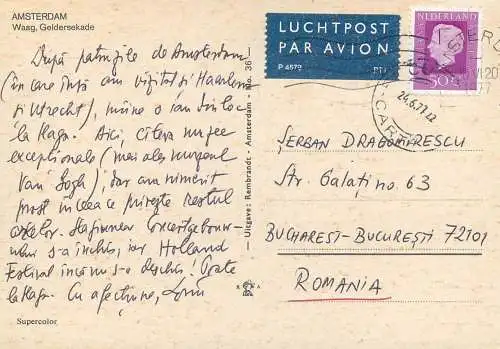 AMSTERDAM
Waag, Geldersekade
După patru zile de Amsterdam
(în care însă am vizitat și Haarlem
și Utrecht), mîine o iau din loc
la Haga. Aici, cîteva muzee
excepționale (mai ales muzeul
Van Gogh), dar am nimerit
prost în ceea ce privește restul
Stagiunea Concertgebouw-
ului s-a închis, iar Holland
Festival încă nu s-a deschis. Poate
la Haga. Cu afecțiune,
Supercolor
Uitgave: Rembrandt - Amsterdam - No. 36
LUCHTPOST
PAR AVION
P 4579
PTT
NEDERLAND
50 c
24.6.77
ȘERBAN DRAGOMIRESCU
Str. Galați no. 63
BUCHAREST-BUCUREȘTI 72101
ROMANIA